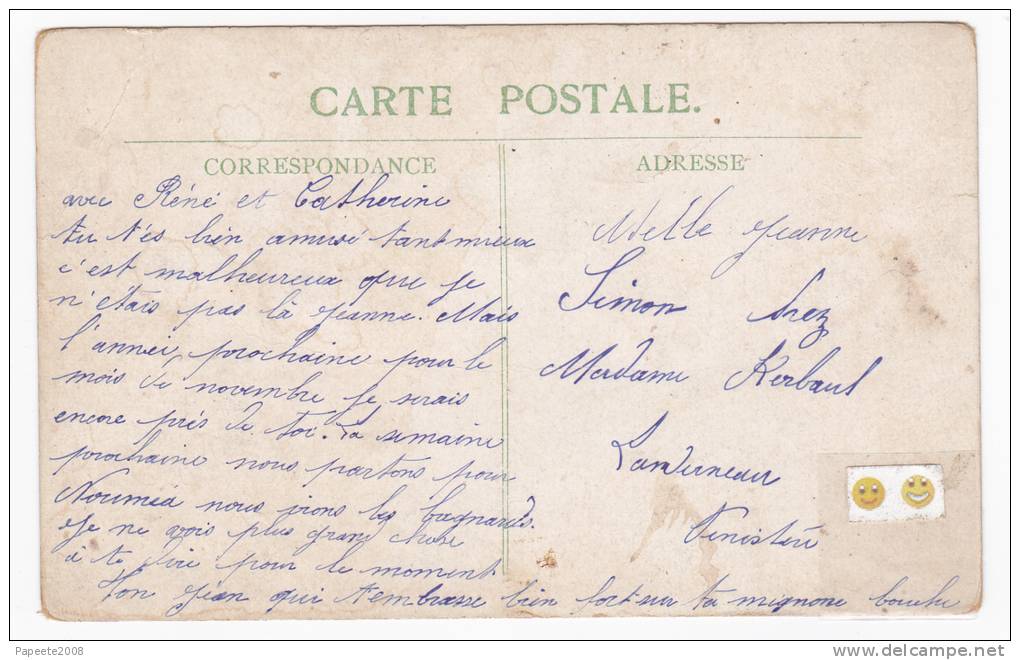 CARTE POSTALE.
CORRESPONDANCE
avec Réné et Catherine
tu t'es bien amusé tant mieux
c'est malheureux que je
n'étais pas là Jeanne. Mais
l'année prochaine pour le
mois de novembre je serais
encore près de toi. La semaine
prochaine nous partons pour
Nouméa nous irons les bagnards.
Je ne vois plus grand chose
à te dire pour le moment
Ton Jean qui t'embrasse bien fort sur ta mignone bouche
ADRESSE
Melle Jeanne
Simon chez
Madame Kerbaul
Landerneau
Finistère
Papeete2008
www.delcampe.net